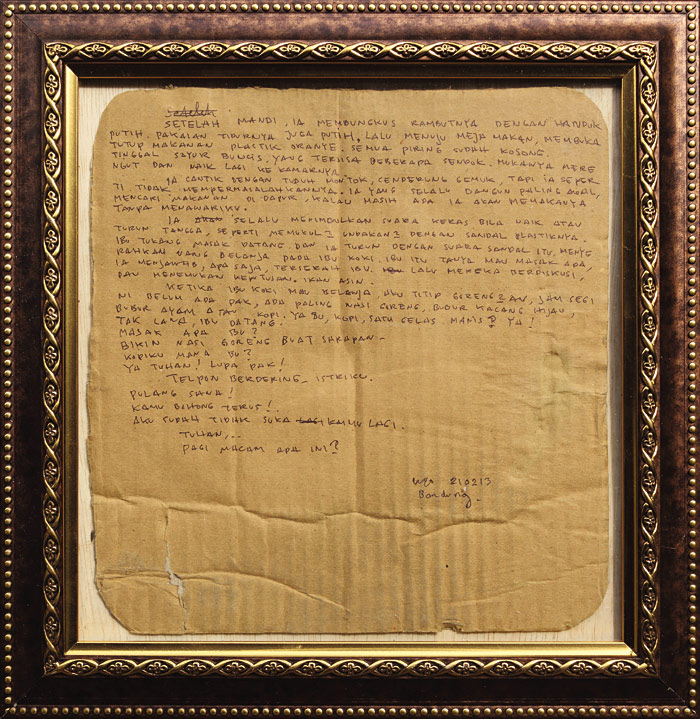 Setelah
SETELAH MANDI, IA MEMBUNGKUS RAMBUTNYA DENGAN HANDUK
PUTIH. PAKAIAN TIDURNYA JUGA PUTIH. LALU, MENUJU MEJA MAKAN, MEMBUKA
TUTUP MAKANAN PLASTIK ORANYE SEMUA PIRING SUDAH KOSONG,
TINGGAL SAYUR BUNCIS, YANG TERSISA BEBERAPA SENDOK, MUKANYA MERE
NGUT DAN NAIK LAGI KE KAMARNYA.
IA CANTIK DENGAN TUBUH MONTOK, CENDERUNG GEMUK, TAPI IA SEPER
TI TIDAK MEMPERMASALAHKANNYA. IA YANG SELALU BANGUN PALING AWAL,
MENCARI MAKANAN DI DAPUR, KALAU MASIH ADA IA AKAN MEMAKANYA
TANPA MENAWARIKU.
IA AKAN SELALU MENIMBULKAN SUARA KERAS BILA NAIK ATAU
TURUN TANGGA, SEPERTI MEMUKUL2 UNDAKAN2 DENGAN SANDAL PLASTIKNYA.
IBU TUKANG MASAK DATANG. DAN IA TURUN DENGAN SUARA SANDAL ITU, MENYE
RAHKAN UANG BELANJA PADA IBU KOKI. IBU ITU TANYA MAU MASAK APA,
IA MENJAWAB, APA SAJA, TERSERAH IBU. LALU MEREKA BERDISKUSI,
DAN MENEMUKAN KEPUTUSAN. IKAN ASIN.
KETIKA IBU KOKI MAU BELANJA, AKU TITIP GORENG2AN, JAM SEGI
NI BELUM ADA PAK, ADA PALING NASI GORENG, BUBUR KACANG HIJAU,
BUBUR AYAM ATAU KOPI. YA BU, KOPI, SATU GELAS. MANIS? YA!
TAK LAMA, IBU DATANG.
MASAK APA BU?
BIKIN NASI GORENG BUAT SARAPAN.
KOPIKU MANA BU?
YA TUHAN! LUPA PAK!
TELPON BERDERING. ISTRIKU.
PULANG SANA!
KAMU BOHONG TERUS!
AKU SUDAH TIDAK SUKA LAGI KAMU LAGI.
TUHAN,..
PAGI MACAM APA INI?
210213
Bandung.